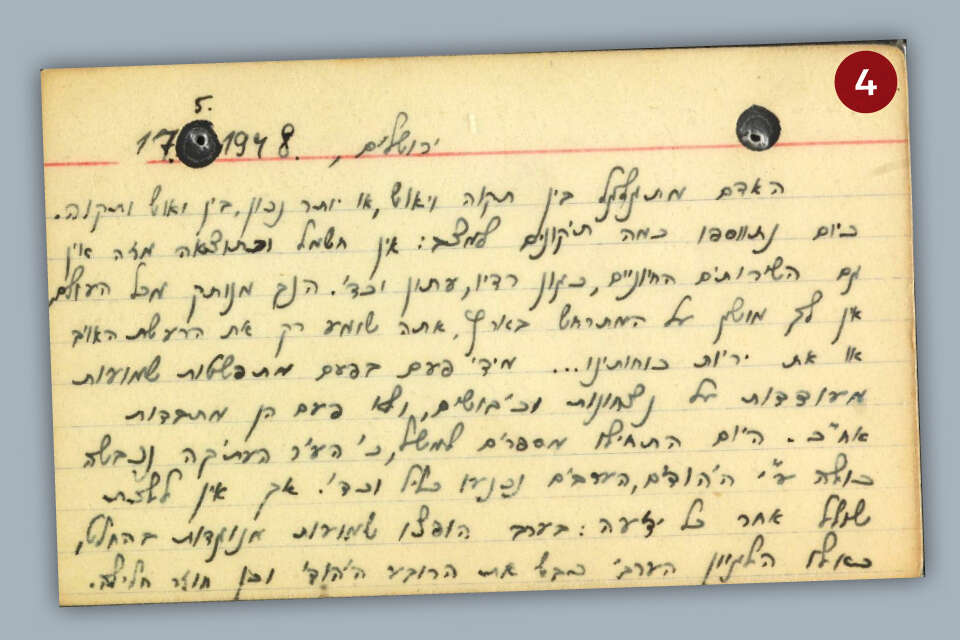 4
ירושלים, 17.5.1948.
האדם מתגלגל בין תקוה ויאוש, או יותר נכון, בין יאוש ותקוה.
כיום נתווספו כמה תיקונים למצב: אין חשמל וכתוצאה מזה אין
גם השירותים החיוניים, כגון רדיו, עתון וכד'. הנך מנותק מכל העולם,
אין לך מושג על המתרחש בארץ, אתה שומע רק את הרעשת האויב
או את יריות כוחותינו... מידי פעם בפעם מתפשטות שמועות
מעודדות על נצחונות וכיבושים, ולא פעם הן מתבדות
אח"כ. היום התחילו מספרים למשל, כי העיר העתיקה נכבשה
כולה ע"י היהודים, הערבים נכנעו כליל וכד'. אך אין
שולל אחר כל ידיעה: בערב הופצו שמועות מנוגדות בהחלט,
כאילו הלגיון הערבי כבש את הרובע היהודי וכן חוזר חלילה.